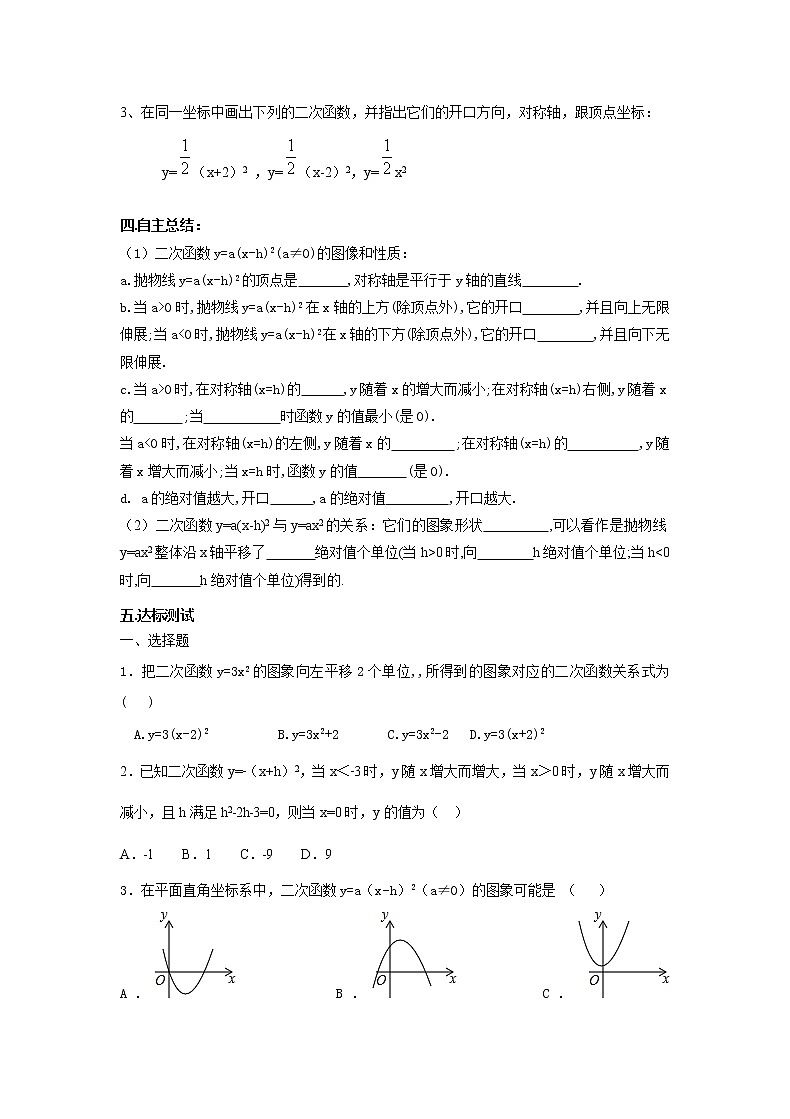 3、在同一坐标中画出下列的二次函数，并指出它们的开口方向，对称轴，跟顶点坐标：
y=1/2（x+2）²，y=1/2（x-2）²，y=1/2x²
四.自主总结：
（1）二次函数y=a(x-h)²(a≠0)的图像和性质：
a.抛物线y=a(x-h)²的顶点是_______,对称轴是平行于y轴的直线________.
b.当a>0时,抛物线y=a(x-h)²在x轴的上方(除顶点外),它的开口________,并且向上无限
伸展;当a<0时,抛物线y=a(x-h)²在x轴的下方(除顶点外),它的开口________,并且向下无
限伸展.
c.当a>0时,在对称轴(x=h)的______,y随着x的增大而减小;在对称轴(x=h)右侧,y随着x
的_______;当___________时函数y的值最小(是0).
当a<0时,在对称轴(x=h)的左侧,y随着x的_________;在对称轴(x=h)的__________,y随
着x增大而减小;当x=h时,函数y的值_______(是0).
d. a的绝对值越大,开口______,a的绝对值_________,开口越大.
（2）二次函数y=a(x-h)²与y=ax²的关系：它们的图象形状_________,可以看作是抛物线
y=ax²整体沿x轴平移了_______绝对值个单位(当h>0时,向________h绝对值个单位;当h<0
时,向_______h绝对值个单位)得到的.
五.达标测试
一、选择题
1.把二次函数y=3x²的图象向左平移2个单位,,所得到的图象对应的二次函数关系式为
( )
A.y=3(x-2)² B.y=3x²+2 C.y=3x²-2 D.y=3(x+2)²
2.已知二次函数y=-（x+h）²，当x＜-3时，y随x增大而增大，当x＞0时，y随x增大而
减小，且h满足h²-2h-3=0，则当x=0时，y的值为（ ）
A.-1 B.1 C.-9 D.9
3.在平面直角坐标系中，二次函数y=a（x-h）²（a≠0）的图象可能是 （ ）
y y y
O x O x O x
A . B . C .